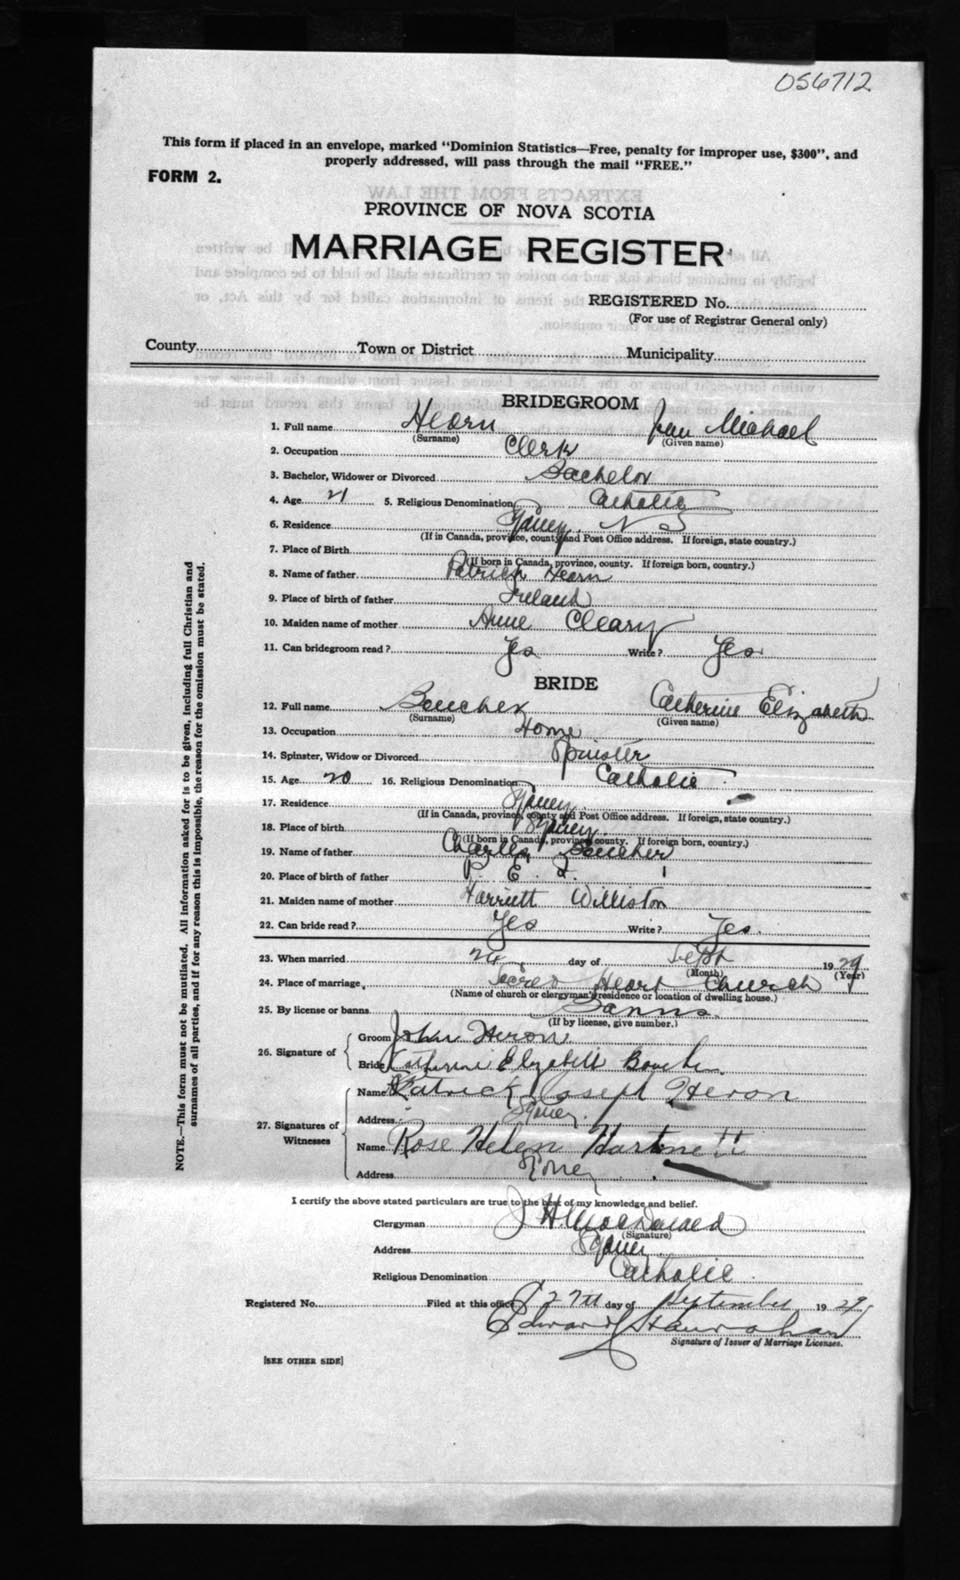 056712
This form if placed in an envelope, marked "Dominion Statistics—Free, penalty for improper use, $300", and
properly addressed, will pass through the mail "FREE."
FORM 2.
PROVINCE OF NOVA SCOTIA
MARRIAGE REGISTER
REGISTERED No.
(For use of Registrar General only)
County Town or District Municipality
BRIDEGROOM
1. Full name Hearn Michael
(Surname) (Given name)
2. Occupation Clerk
3. Bachelor, Widower or Divorced Bachelor
4. Age 21 5. Religious Denomination Catholic
6. Residence Sydney N S
(If in Canada, province, county and Post Office address. If foreign, state country.)
7. Place of Birth
(If born in Canada, province, county. If foreign born, country.)
8. Name of father Patrick Hearn
9. Place of birth of father Ireland
10. Maiden name of mother Anne Cleary
11. Can bridegroom read? Yes Write? Yes
BRIDE
12. Full name Boucher Catherine Elizabeth
(Surname) (Given name)
13. Occupation Home
14. Spinster, Widow or Divorced Spinster
15. Age 20 16. Religious Denomination Catholic
17. Residence Sydney
(If in Canada, province, county and Post Office address. If foreign, state country.)
18. Place of birth Sydney
(If born in Canada, province, county. If foreign born, country.)
19. Name of father Charles Boucher
20. Place of birth of father P. E. I.
21. Maiden name of mother Harriett Williston
22. Can bride read? Yes Write? Yes.
23. When married 24 day of Sept 1929
(Month) (Year)
24. Place of marriage Sacred Heart Church
(Name of church or clergyman's residence or location of dwelling house.)
25. By license or banns Banns.
(If by license, give number.)
26. Signature of Groom John Heron
Bride Catherine Elizabeth Boucher
27. Signatures of Witnesses Name Patrick Joseph Heron
Address Sydney.
Name Rose Helen Hartnett
Address Sydney
I certify the above stated particulars are true to the best of my knowledge and belief.
Clergyman J H MacDonald
(Signature)
Address Sydney
Religious Denomination Catholic
Registered No. Filed at this office 27th day of September 1929
Edward Hanrahan
Signature of Issuer of Marriage Licenses.
[SEE OTHER SIDE]
NOTE.—This form must not be mutilated. All information asked for is to be given, including full Christian and
surnames of all parties, and if for any reason this is impossible, the reason for the omission must be stated.